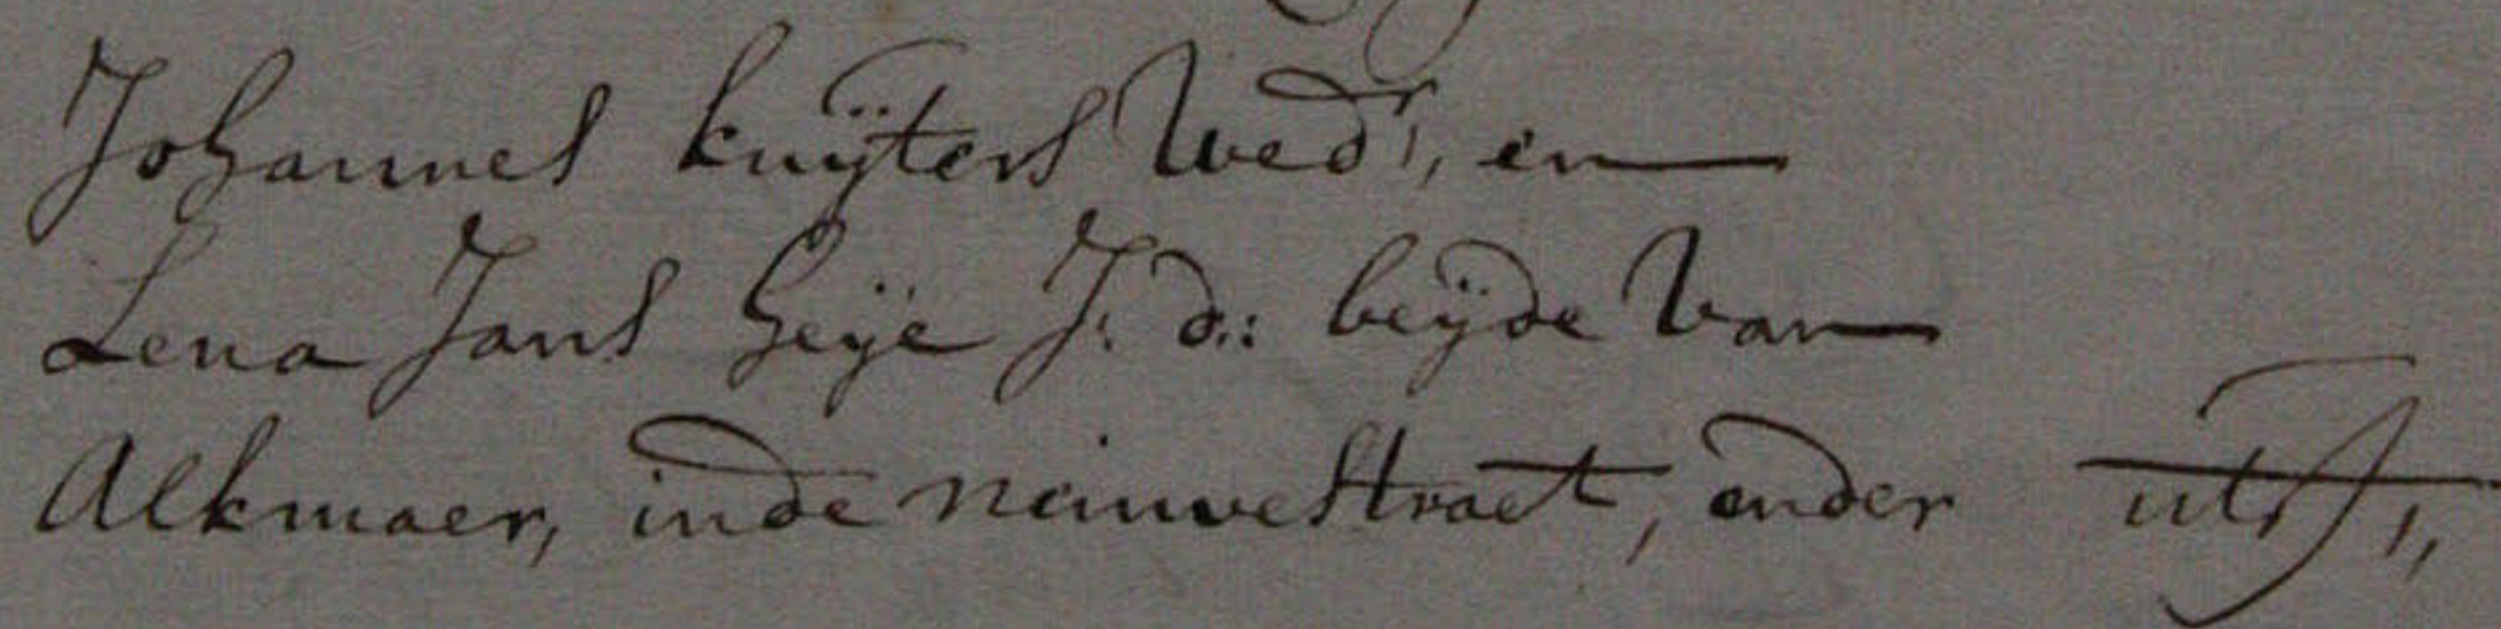 Johannes kuÿters Wedr, en
Lena Jans heÿe J: d:: beÿde Van
Alkmaer, inde nieuwe straet, onder uts,,